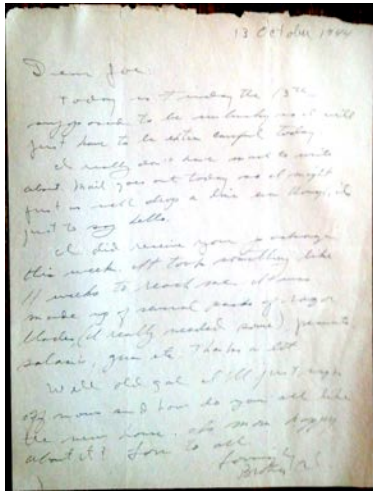 13 October 1944
Dear Joe:
Today is Friday the 13th
supposed to be unlucky so I will
just have to be extra careful today
I really don't have much to write
about. Mail goes out today so I might
just as well drop a line even though, it's
just to say hello.
I did receive your package
this week. It took something like
11 weeks to reach me. It was
made up of several packs of razor
blades (I really needed some), peanuts
gum etc. Thanks a lot
Well old gal I'll just sign
off now and how do you all like
the new house.
about it? Love to all
Lovingly
Brother